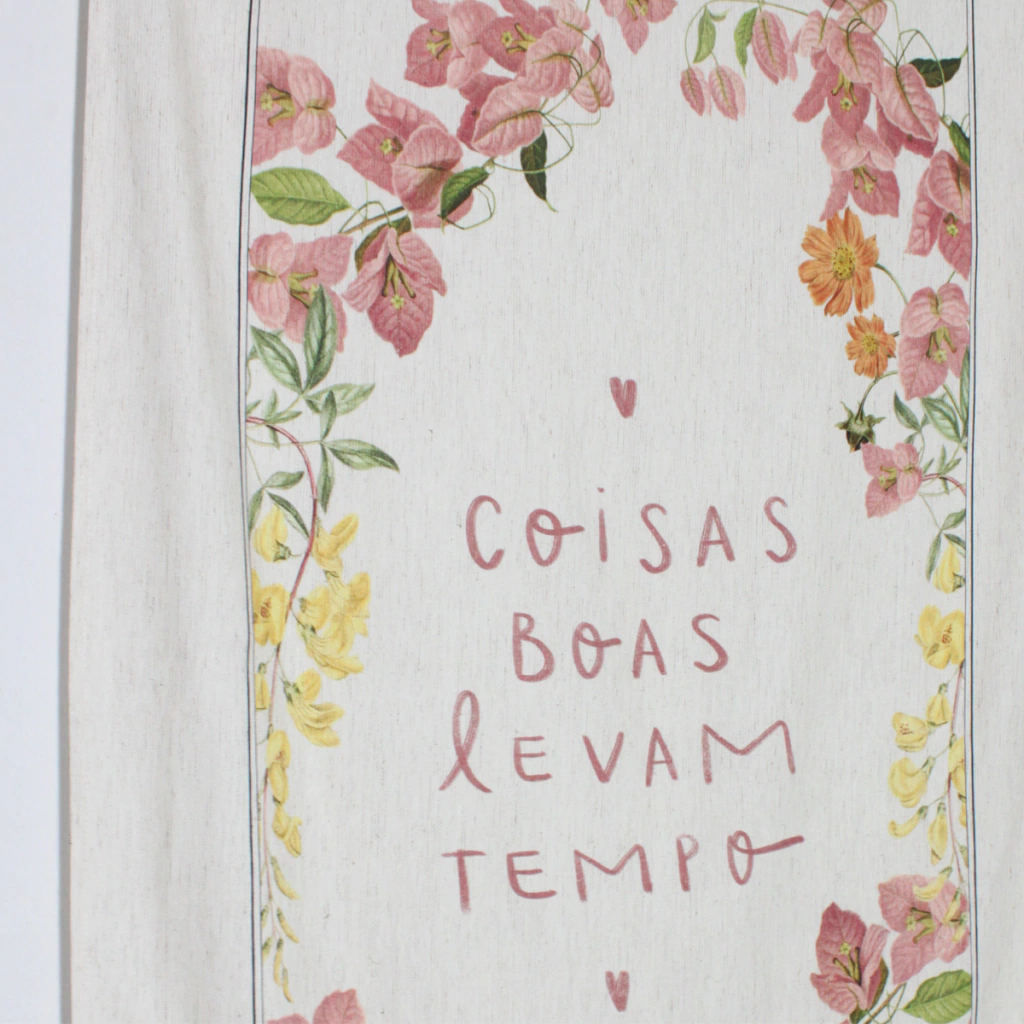 COISAS
BOAS
lEVAM
TEMPO